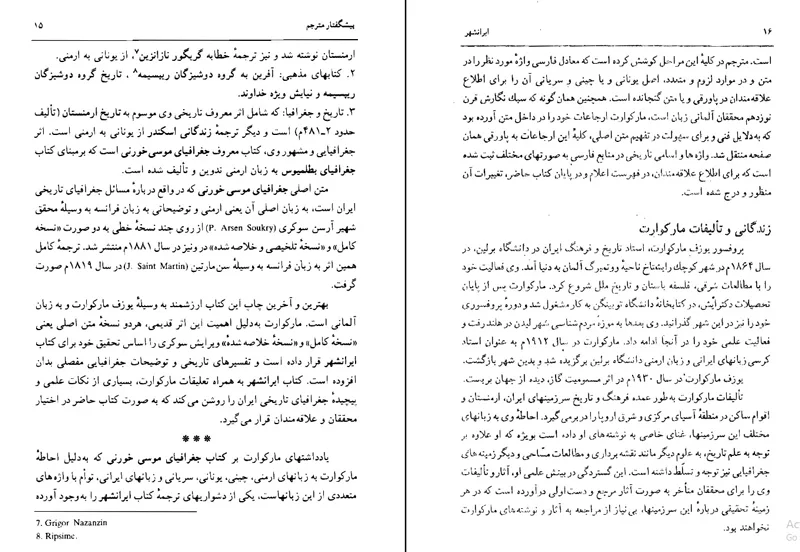 پیشگفتار مترجم ۱۵
ارمنستان نوشته شد و نیز ترجمهٔ خطابه گریگور نازانزین۷، از یونانی به ارمنی.
۲. کتابهای مذهبی: آفرین به گروه دوشیزگان ریپسیمه۸ ، تاریخ گروه دوشیزگان
ریپسیمه و نیایش ویژه خداوند.
۳. تاریخ و جغرافیا: که شامل اثر معروف تاریخی وی موسوم به تاریخ ارمنستان (تألیف
حدود ۲ـ۴۸۱م) است و دیگر ترجمهٔ زندگانی اسکندر از یونانی به ارمنی است. اثر
جغرافیایی و مشهور وی، کتاب معروف جغرافیای موسی خورنی است که برمبنای کتاب
جغرافیای بطلمیوس به زبان ارمنی تدوین و تألیف شده است.
متن اصلی جغرافیای موسی خورنی که در واقع دربارهٔ مسائل جغرافیای تاریخی
ایران است، به زبان اصلی آن یعنی ارمنی و توضیحاتی به زبان فرانسه به وسیلهٔ محقق
شهیر آرسن سوکری (P. Arsen Soukry) از روی چند نسخهٔ خطی به دو صورت «نسخه
کامل» و «نسخهٔ تلخیصی و خلاصه شده» در ونیز در سال ۱۸۸۱م منتشر شد. ترجمهٔ کامل
همین اثر به زبان فرانسه به وسیلهٔ سن مارتین (J. Saint Martin) در سال ۱۸۱۹م صورت
گرفت.
بهترین و آخرین چاپ این کتاب ارزشمند به وسیلهٔ یوزف مارکوارت و به زبان
آلمانی است. مارکوارت به‌دلیل اهمیت این اثر قدیمی، هردو نسخهٔ متن اصلی یعنی
«نسخهٔ کامل» و «نسخهٔ خلاصه شده» ویرایش سوکری را اساس تحقیق خود برای کتاب
ایرانشهر قرار داده است و تفسیرهای تاریخی و توضیحات جغرافیایی مفصلی بدان
افزوده است. کتاب ایرانشهر به همراه تعلیقات مارکوارت، بسیاری از نکات علمی و
پیچیدهٔ جغرافیای تاریخی ایران را روشن می‌کند که به صورت کتاب حاضر در اختیار
محققان و علاقه‌مندان قرار می‌گیرد.
***
یادداشتهای مارکوارت بر کتاب جغرافیای موسی خورنی که به‌دلیل احاطهٔ
مارکوارت به زبانهای ارمنی، چینی، یونانی، سریانی و زبانهای ایرانی، توأم با واژه‌های
متعددی از این زبانهاست، یکی از دشواریهای ترجمهٔ کتاب ایرانشهر را به‌وجود آورده
7. Grigor Nazanzin
8. Ripsime.
۱۶ ایرانشهر
است. مترجم در کلیهٔ این مراحل کوشش کرده است که معادل فارسی واژهٔ مورد نظر را در
متن و در موارد لزوم و متعدد، اصل یونانی و یا چینی و سریانی آن را برای اطلاع
علاقه‌مندان در پاورقی و یا متن گنجانده است. همچنین همان‌گونه که سبك نگارش قرن
نوزدهم محققان آلمانی زبان است، مارکوارت ارجاعات خود را در داخل متن آورده بود
که به‌دلایل فنی و برای سهولت در تفهیم متن اصلی، کلیهٔ این ارجاعات به پاورقی همان
صفحه منتقل شد. واژه‌ها و اسامی تاریخی در منابع فارسی به صورتهای مختلف ثبت شده
است که برای اطلاع علاقه‌مندان، در فهرست اعلام و در پایان کتاب حاضر، تغییرات آن
منظور و درج شده است.
زندگانی و تألیفات مارکوارت
پروفسور یوزف مارکوارت، استاد تاریخ و فرهنگ ایران در دانشگاه برلین، در
سال ۱۸۶۴م در شهر کوچك رایشناخ ناحیهٔ وورتمبرگ آلمان به دنیا آمد. وی فعالیت خود
را با مطالعات شرقی، فلسفه باستان و تاریخ ملل شروع کرد. مارکوارت پس از پایان
تحصیلات دکترایش، در کتابخانهٔ دانشگاه توبینگن به کار مشغول شد و دورهٔ پروفسوری
خود را نیز در این شهر گذرانید. وی بعدها به موزه مردم‌شناسی شهر لیدن در هلند رفت و
فعالیت علمی خود را در آنجا ادامه داد. مارکوارت در سال ۱۹۱۲م به عنوان استاد
کرسی زبانهای ایرانی و زبان ارمنی دانشگاه برلین برگزیده شد و بدین شهر بازگشت.
یوزف مارکوارت در سال ۱۹۳۰م در اثر مسمومیت گاز، دیده از جهان بربست.
تألیفات مارکوارت به‌طور عمده فرهنگ و تاریخ سرزمینهای ایران، ارمنستان و
اقوام ساکن در منطقهٔ آسیای مرکزی و شرق اروپا را در برمی‌گیرد. احاطهٔ وی به زبانهای
مختلف این سرزمینها، غنای خاصی به نوشته‌های او داده است بویژه که او علاوه بر
توجه به علم تاریخ، به علوم دیگر مانند نقشه‌برداری و مطالعات مسّاحی و دیگر زمینه‌های
جغرافیایی نیز توجه و تسلّط داشته است. این گستردگی در بینش علمی او، آثار و تألیفات
وی را برای محققان متأخر به صورت آثار مرجع و دست‌اولی درآورده است که در هر
زمینهٔ تحقیقی دربارهٔ این سرزمینها، بی‌نیاز از مراجعه به آثار و نوشته‌های مارکوارت
نخواهند بود.
Ac
Go